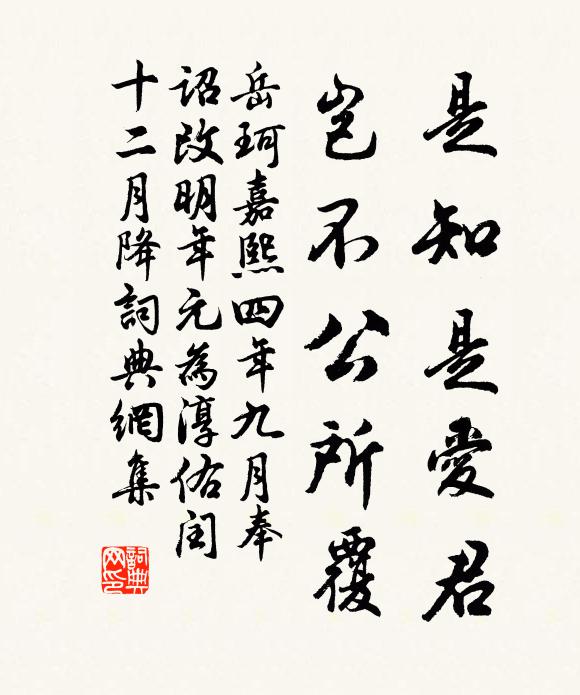 是知是愛君
豈不公所覆
岳珂嘉熙四年九月奉
詔改明年元為淳佑閏
十二月降詞典網集
詞典網印